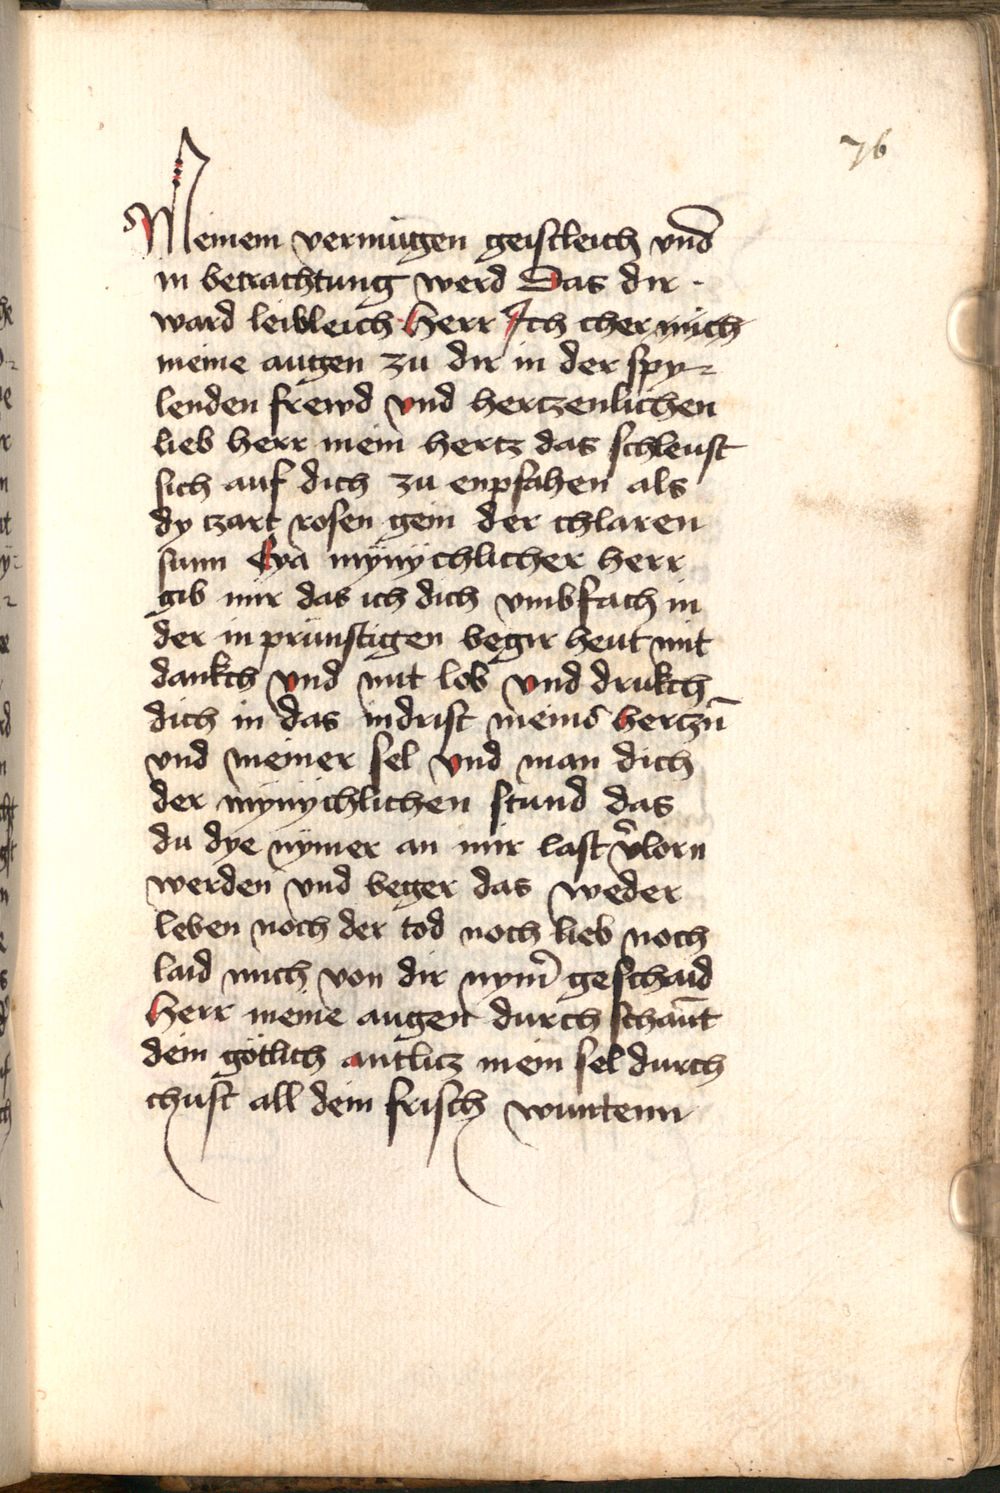 76
Meinem vermügen geistleich vnd
in betrachtung werd Das dir ·
ward leibleich · Herr Ich cher mich
meine augen zu dir in der spy⸗
lenden frewd vnd hertzenlichen
lieb herr mein hertz das schleust
sich auf dich zu enpfahen als
dy tzart rosen gein der chlaren
sunn Eya mÿnÿchlicher herr
gib mir das ich dich vmbfach in
der in prünstigen begir heut mit
dankch vnd mit lob vnd drukch
dich in das indrist meins hertzn̄
vnd meiner sel vnd man dich
der mÿnÿchlichen stund das
du dye nÿmer an mir last v̾lorn
werden vnd beger das weder
leben noch der tod noch lieb noch
laid mich von dir nym̾ geschaid
Herr meine augen durch schaūt
dein götlich antlicz mein sel durch
chust all dein frisch wuntenn